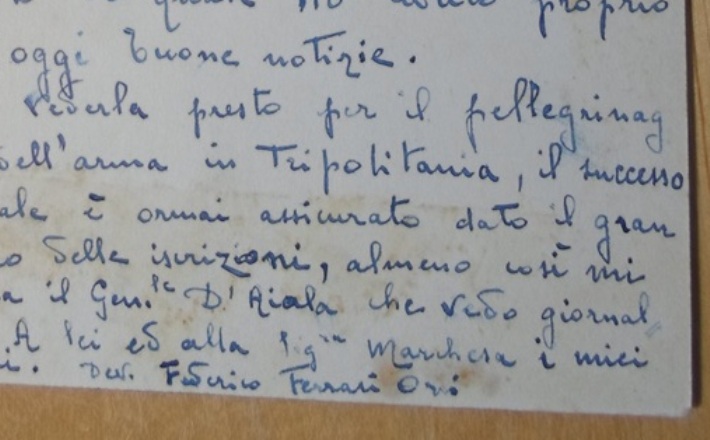 ho avuto proprio
oggi buone notizie.
vederla presto per il pellegrinag
dell'arma in Tripolitania, il successo
ale è ormai assicurato dato il gran
o delle iscrizioni, almeno così mi
a il Gen.le D'Aiala che vedo giornal
A lei ed alla Sig.ra Marchesa i miei
i. Dev. Federico Ferrari Orsi